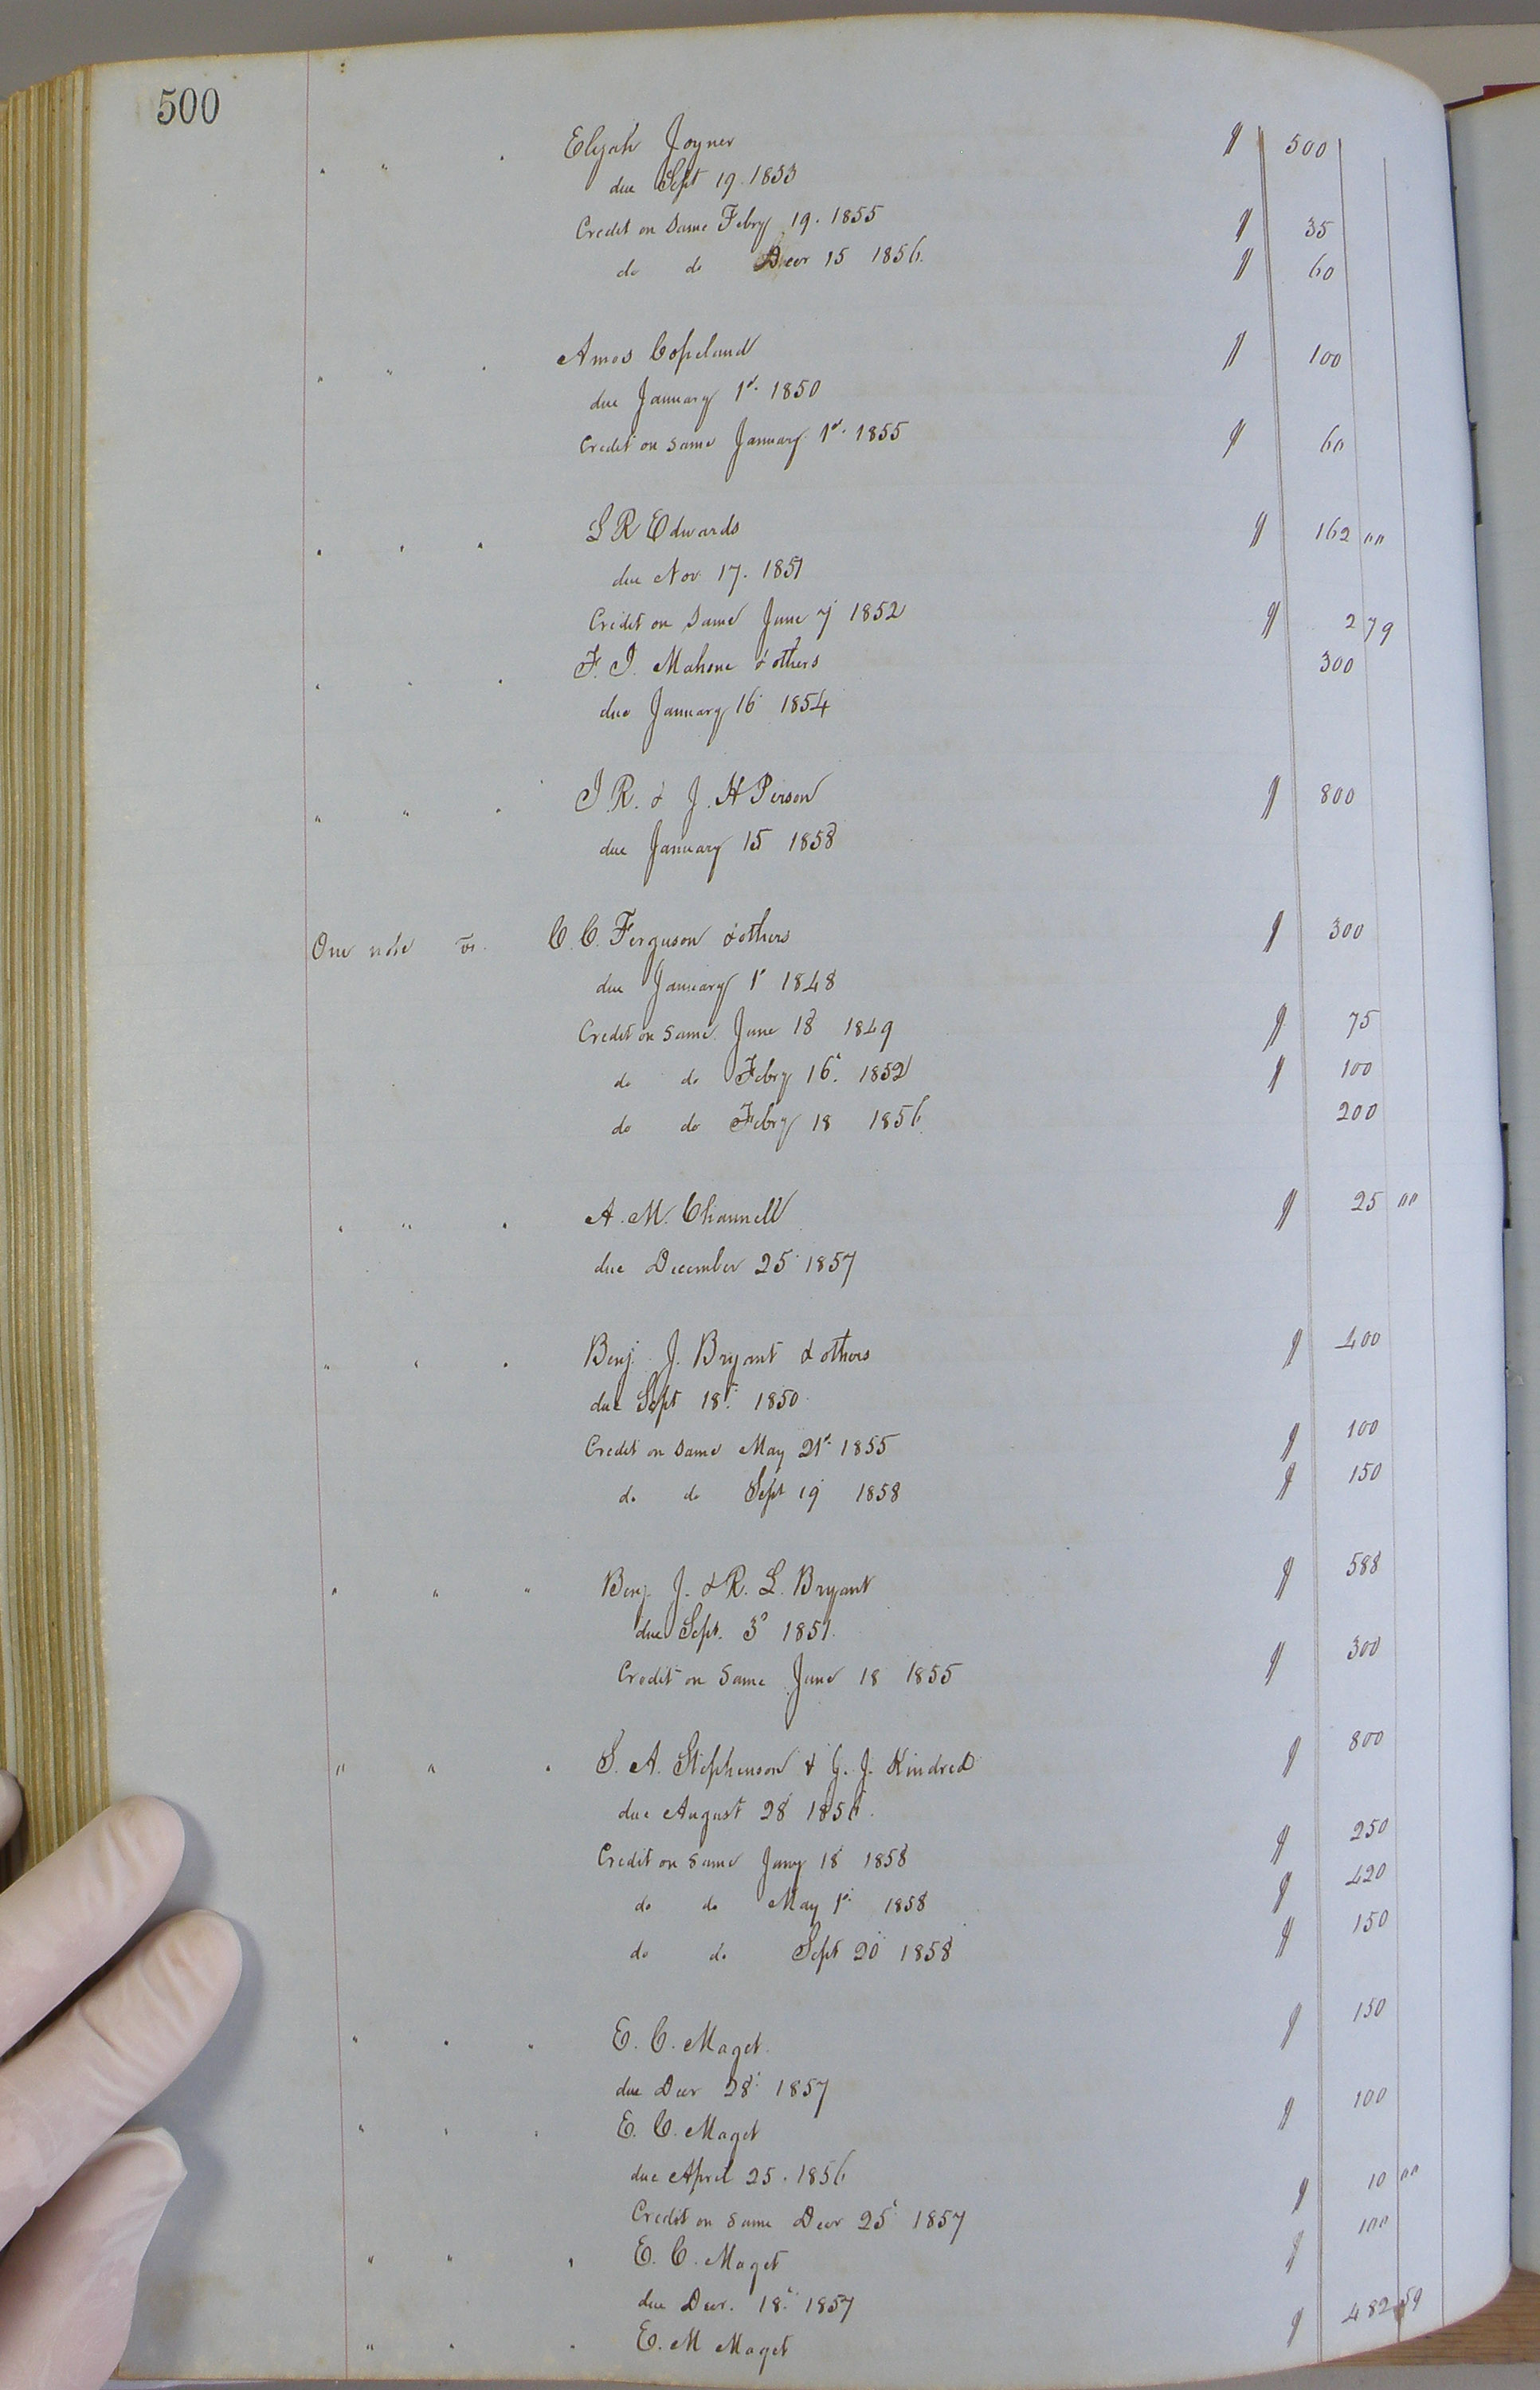 500
" " " Elijah Joyner $ 500
due Sept 19. 1853
Credit on Same Febry 19. 1855 $ 35
do do Decr 15 1856. $ 60
" " " Amos Copeland $ 100
due January 1st 1850
Credit on same January 1st 1855 $ 60
" " " S R Edwards $ 162 00
due Nov 17. 1851
Credit on Same June 7 1852 $ 2 79
" " " F. J. Mahone & others 300
due January 16 1854
" " " J. R. & J. H Person $ 800
due January 15 1858
One note vs. C. C. Ferguson & others $ 300
due January 1st 1848
Credit on Same June 18 1849 $ 75
do do Febry 16th 1852 $ 100
do do Febry 18 1856 200
" " " A. M. Channell $ 25 00
due December 25 1857
" " " Benj. J. Bryant & others $ 400
due Sept 18th 1850
Credit on Same May 21st 1855 $ 100
do do Sept 19 1858 $ 150
" " " Benj. J. & R. L. Bryant $ 588
due Sept. 3d 1851.
Credit on Same June 18 1855 $ 300
" " " S. A. Stephenson & J. J. Kindred $ 800
due August 28 1856.
Credit on Same Jany 18 1858 $ 250
do do May 1st 1858 $ 420
do do Sept 20 1858 $ 150
" " " E. C. Maget $ 150
due Decr 28th 1857
" " " E. C. Maget $ 100
due April 25. 1856
Credit on Same Decr 25th 1857 $ 10 00
" " " E. C. Maget $ 100
due Decr. 18th 1857
" " " E. M Maget $ 482 59